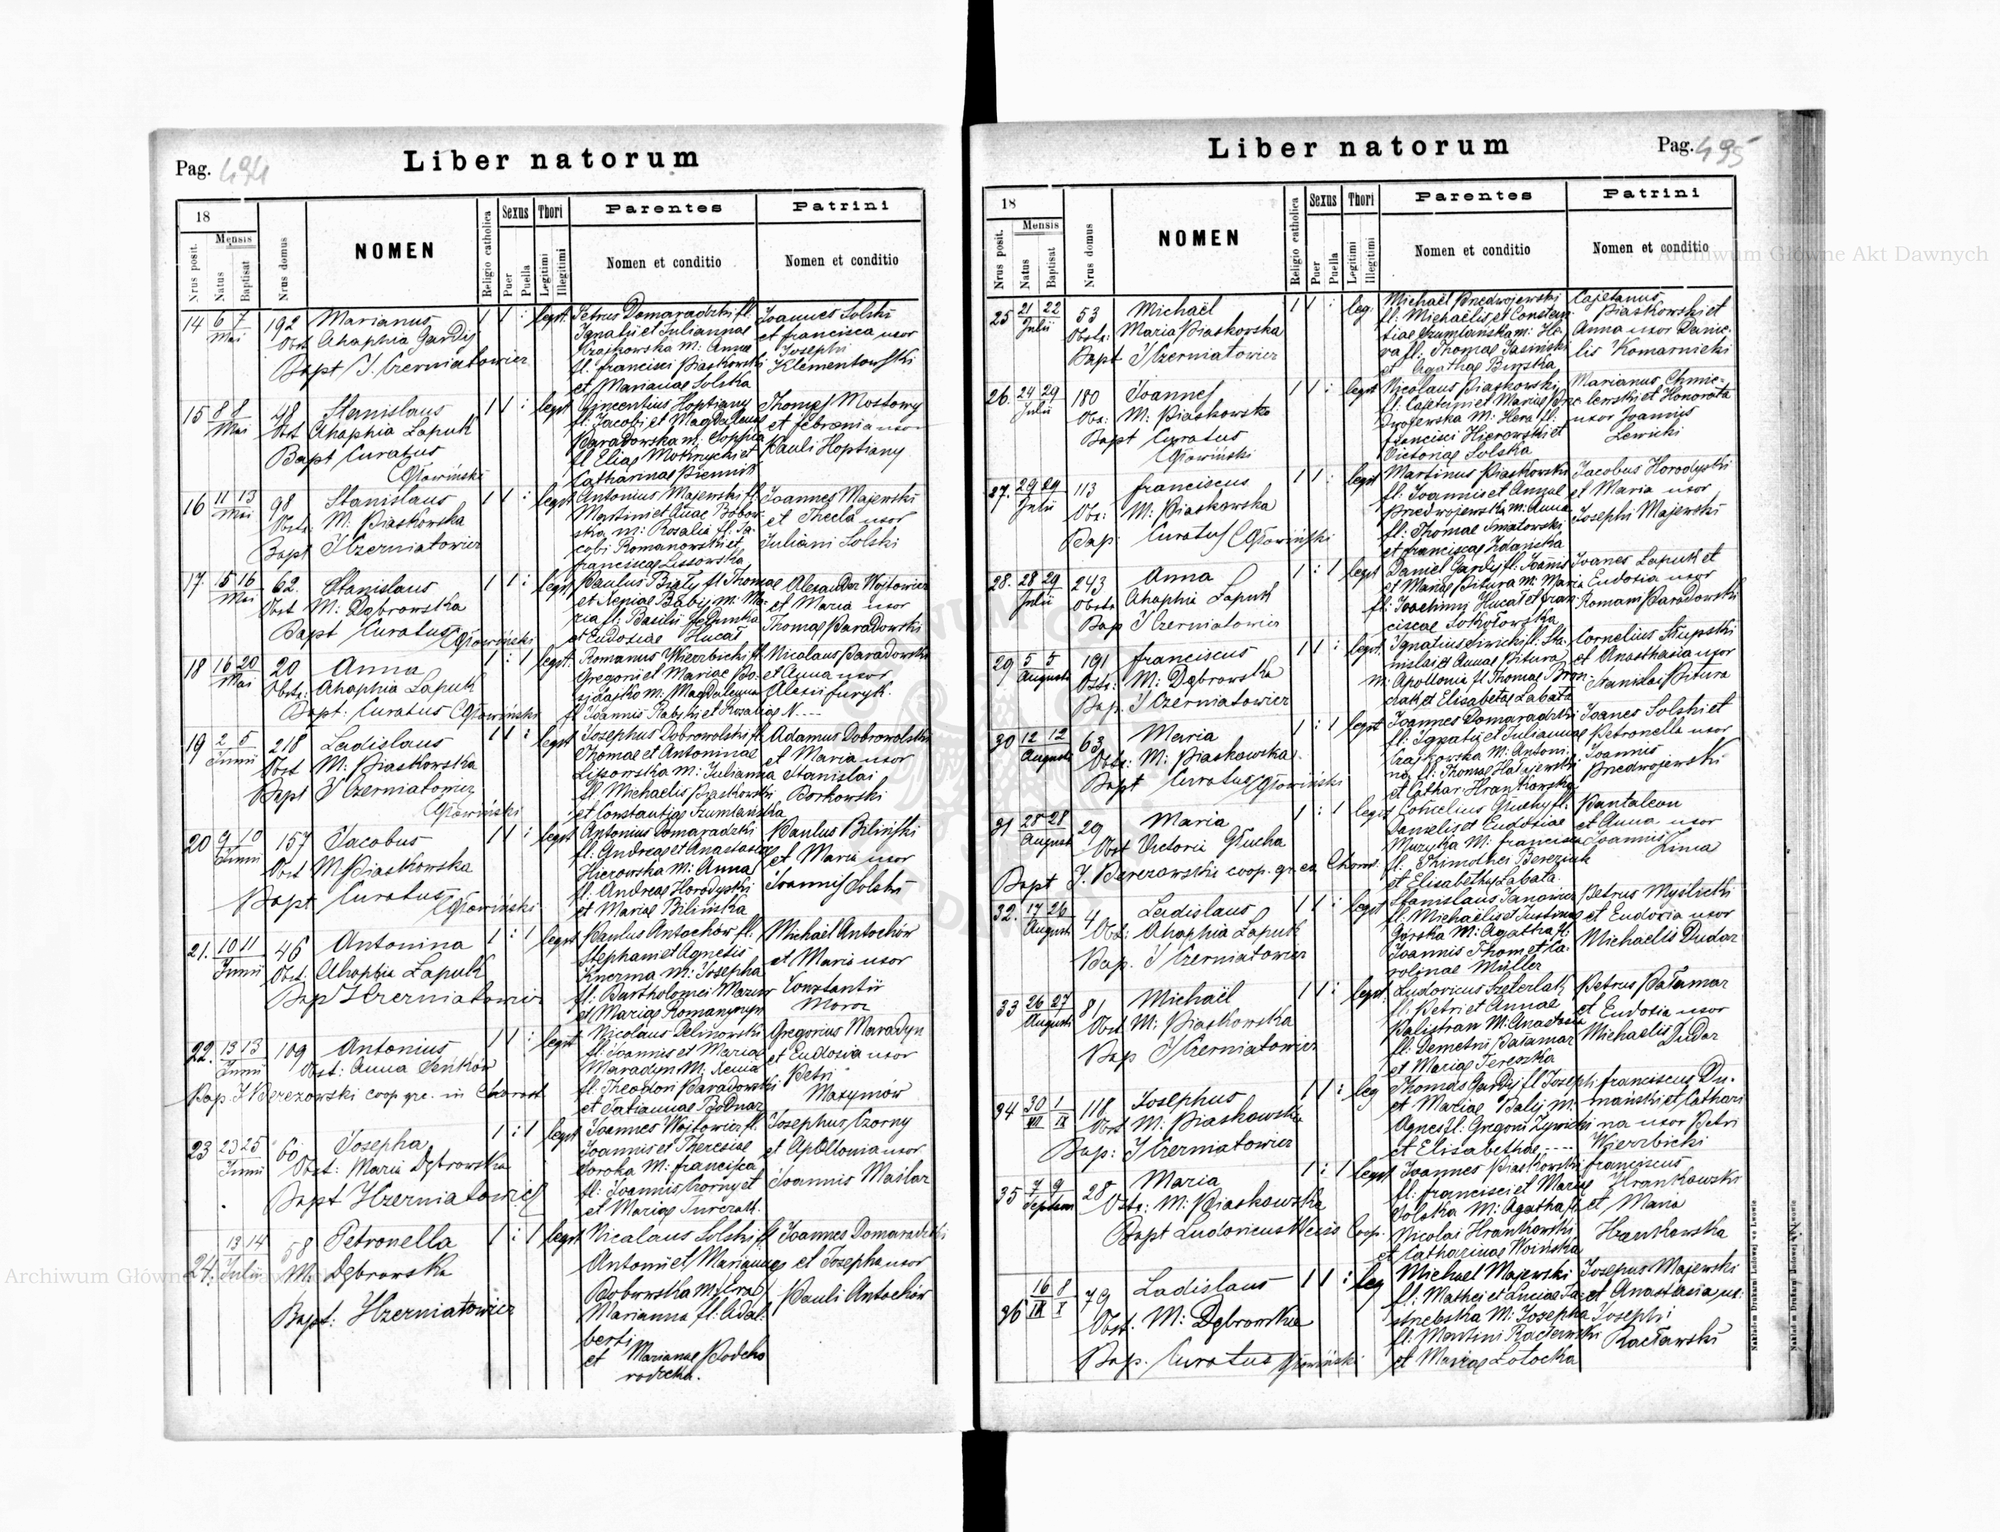 Pag. 494
Liber natorum
18
Mensis
Nrus posit.
Natus
Baptisat
Nrus domus
NOMEN
Religio catholica
Sexus
Puer
Puella
Thori
Legitimi
Illegitimi
Parentes
Nomen et conditio
Patrini
Nomen et conditio
14 6 7 Mai 192 Marianus 1 1 : legit.
Obst Ahaphia Gardij
Bapt J. Czerniatowicz
Petrus Domaradzki fl.
Ignatii et Juliannae
Czajkowska M: Anna
fl. Francisci Piaskowski
et Mariannae Solska
Joannes Solski
et Francisca uxor
Josephi
Klementowski
15 8 8 Mai 48 Stanislaus 1 1 : legit
Obst Ahaphia Laputk
Bapt Curatus
Głowiński
Vincentius Hoptiany
fl. Jacobi et Magdalenae
Paradowska M. Sophia
et Catharinae
Thomas Mostowy
et Febronia uxor
Pauli Hoptiany
16 11 13 Mai 98 Stanislaus 1 1 : legit
Obst: M: Piaskowska
Bapt J Czerniatowicz
Antonius Majewski fl.
Martini et Annae Bobow-
ska M: Rosalia fl. Ja-
cobi Romanowski et
Franciscae Lissowska
Joannes Majewski
et Thecla uxor
Juliani Solski
17. 15 16 Mai 62. Stanislaus 1 1 : legit
Obst M: Dąbrowska
Bapt Curatus Głowiński
Paulus Biały fl Thomae
et Xeniae Babij M: Ma-
ria fl: Basilii
et Eudosiae Hucał
Alexander Wojtowicz
et Maria uxor
Thomae Paradowski
18 16 20 Mai 20 Anna 1 : 1 legit.
Obst: Ahaphia Laputk
Bapt: Curatus Głowiński
Romanus Wierzbicki fl
Gregorii et Mariae
M: Magdalena
fl Joannis et Rosaliae N. ---
Nicolaus Paradowski
et Anna uxor
Alexii Furyk.
19 2 5 Junii 218 Ladislaus 1 1 : legit
Obst M: Piaskowska
Bapt J Czerniatowicz
Głowiński
Josephus Dobrowolski fl
Thomae et Antoninae
Lissowska M: Julianna
fl. Michaelis Piaskowski
et Constantiae Szumlańska
Adamus Dobrowolski
et Maria uxor
Stanislai
Borkowski
20 9 10 Junii 157 Jacobus 1 1 : legit
Obst M Piaskowska
Bapt Curatus Głowiński
Antonius Domaradzki
fl. Andreae et Anastasiae
Hierowska M: Anna
fl. Andreae Horodyski
et Mariae Bilińska
Paulus Biliński
et Maria uxor
Joannis Solski
21. 10 11 Junii 46 Antonina 1 : 1 legit
Obst: Ahaphia Laputk
Bap J Czerniatowicz
Paulus Antochów fl.
Stephani et Agnetis
M: Josepha
fl: Bartholomei Mazur
et Mariae Romanyszyn
Michaël Antochów
et Maria uxor
Constantii
Moroz
22. 13 13 Junii 109 Antonius 1 1 : legit
Obst: Anna Senków
Bap J Berezowski coop grc. in Chorost.
Nicolaus Pelinowski
fl: Joannis et Mariae
Maradyn M: Xenia
fl. Theodori Paradowski
et Tatiannae Bodnar
Gregorius Maradyn
et Eudosia uxor
Petri
Maxymów
23 23 25 Junii 60 Josepha 1 : 1 legit
Obst: Maria Dąbrowska
Bapt J Czerniatowicz
Joannes Wojtowicz fl.
Joannis et Theresiae
Soroka M: Francisca
fl: Joannis Czorny et
et Mariae
Josephus Czorny
et Apollonia uxor
Joannis Maślar
24. 13 14 Julii 58 Petronella 1 : 1 legit
M: Dąbrowska
Bapt: J Czerniatowicz
Nicolaus Solski fl
Antonii et Mariannae
Bobowska M:
Marianna fl: Adal-
berti
et Mariannae Podho
rodzecka.
Joannes Domaradzki
et Josepha uxor
Pauli Antochów
Liber natorum
Pag. 495
18
Mensis
Nrus posit.
Natus
Baptisat
Nrus domus
NOMEN
Religio catholica
Sexus
Puer
Puella
Thori
Legitimi
Illegitimi
Parentes
Nomen et conditio
Patrini
Nomen et conditio
25 21 22 Julii 53 Michaël 1 1 : leg.
Obst: Maria Piaskowska
Bapt J Czerniatowicz
Michaël Przedwojewski
fl: Michaëlis et Constan-
tiae Szumlańska M: Ho-
ra fl. Thomae Jasiński
et Agathae Binska
Cajetanus
Piaskowski et
Anna uxor Danie-
lis Komarnicki
26. 24 29 Julii 180 Joannes 1 1 : legit
Obs: M: Piaskowska
Bapt Curatus
Głowiński
Nicolaus Piaskowski
fl: Cajetani et Mariae Prze-
dwojewska M: Hora fl.
Francisci Hierowski et
Victoriae Solska
Marianus Chmie-
lewski et Honorata
uxor Joannis
Lewicki
27. 29 29 Julii 113 Franciscus 1 1 : legit
Obs: M: Piaskowska
Bap: Curatus Głowiński
Martinus Piaskowski
fl: Joannis et Annae
Przedwojewska M: Anna
fl: Thomae Swiatowski
et Franciscae Zdańska
Jacobus Horodyski
et Maria uxor
Josephi Majewski
28. 28 29 Julii 243 Anna 1 : 1 legit
Obstr Ahaphia Laputk
Bap J Czerniatowicz
Daniel Gardij fl: Joannis
et Mariae Pitura M: Maria
fl: Joachimi Hucał et Fran-
ciscae Sokołowska
Joannes Laputk et
Eudosia uxor
Romani Paradowski
29 5 5 Augusti 191 Franciscus 1 1 : legit.
Obst: M: Dąbrowska
Bap. J Czerniatowicz
Ignatius Siwicki fl. Sta-
nislai et Annae Pitura
M: Apollonia fl Thomae
et Elisabetae Labata
Cornelius Skupski
et Anasthasia uxor
Stanislai Pitura
30 12 12 Augusti 63 Maria 1 : 1 legit
Obst: M: Piaskowska
Bapt Curatus Głowiński
Joannes Domaradzki
fl: Ignatii et Juliannae
Czajkowska M: Antoni-
na fl: Thomae Hatajewski
et Cathar Hrankowska
Joannes Solski et
Petronella uxor
Joannis
Przedwojewski
31 28 28 August 29 Maria 1 : 1 legit
Obst Victoria Głucha
Bapt J. Berezowski coop. gr. ca Chorost.
Cornelius Głuchy fl.
et Eudosiae
Muzyka M: Francisca
fl: Thimothei Bereziuk
et Elisabethae Labata.
Pantaleon
et Anna uxor
Joannis
Zima
32. 17 26 Augusti 4 Ladislaus 1 1 : legit
Obst: Ahaphia Laputk
Bap. J Czerniatowicz
Stanislaus Janowicz
fl: Michaëlis et Justinae
Górska M: Agatha fl.
Joannis Thom et Ca-
rolinae Müller
Petrus Myslicki
et Eudosia uxor
Michaelis Dudar
33 26 27 Augusti 81 Michaël 1 1 : legit.
Obst M: Piaskowska
Bap J Czerniatowicz
Ludovicus Szeterlak
fl: Petri et Annae
Balistran M: Anastasia
fl: Demetrii Pałamar
et Mariae Tereszka
Petrus Pałamar
et Eudosia uxor
Michaelis
Dudar
34 30 1 VIII IX 118 Josephus 1 1 : leg
Obst M: Piaskowska
Bap: J Czerniatowicz
Thomas Gardij fl Josephi
et Mariae Balij M:
Agnes fl: Gregorii Zywicki
et Elisabethae -----
Franciscus Du-
mański et Cathari
na uxor Petri
Wierzbicki
35 7 9 Septem 28 Maria 1 : 1 legit
Obst: M: Piaskowska
Bapt Ludovicus Weiss Coop.
Joannes Piaskowski
fl: Francisci et Mariae
Solska M: Agatha fl.
Nicolai Hrankowski
et Catharinae Woińska
Franciscus
Hrankowski
et Maria
Hrankowska
36 16 8 IX X 79 Ladislaus 1 1 : leg
Obst. M: Dąbrowska
Bap. Curatus Głowiński
Michael Majewski
fl: Mathei et Luciae Ja-
strzebska M: Josepha
fl: Martini Racławski
et Mariae Łotocka
Josephus Majewski
et Anastasia ux:
Josephi
Racławski
Nakładem Drukarni Ludowej we Lwowie
Nakładem Drukarni Ludowej we Lwowie
Archiwum Główne Akt Dawnych
Archiwum Główne Akt Dawnych